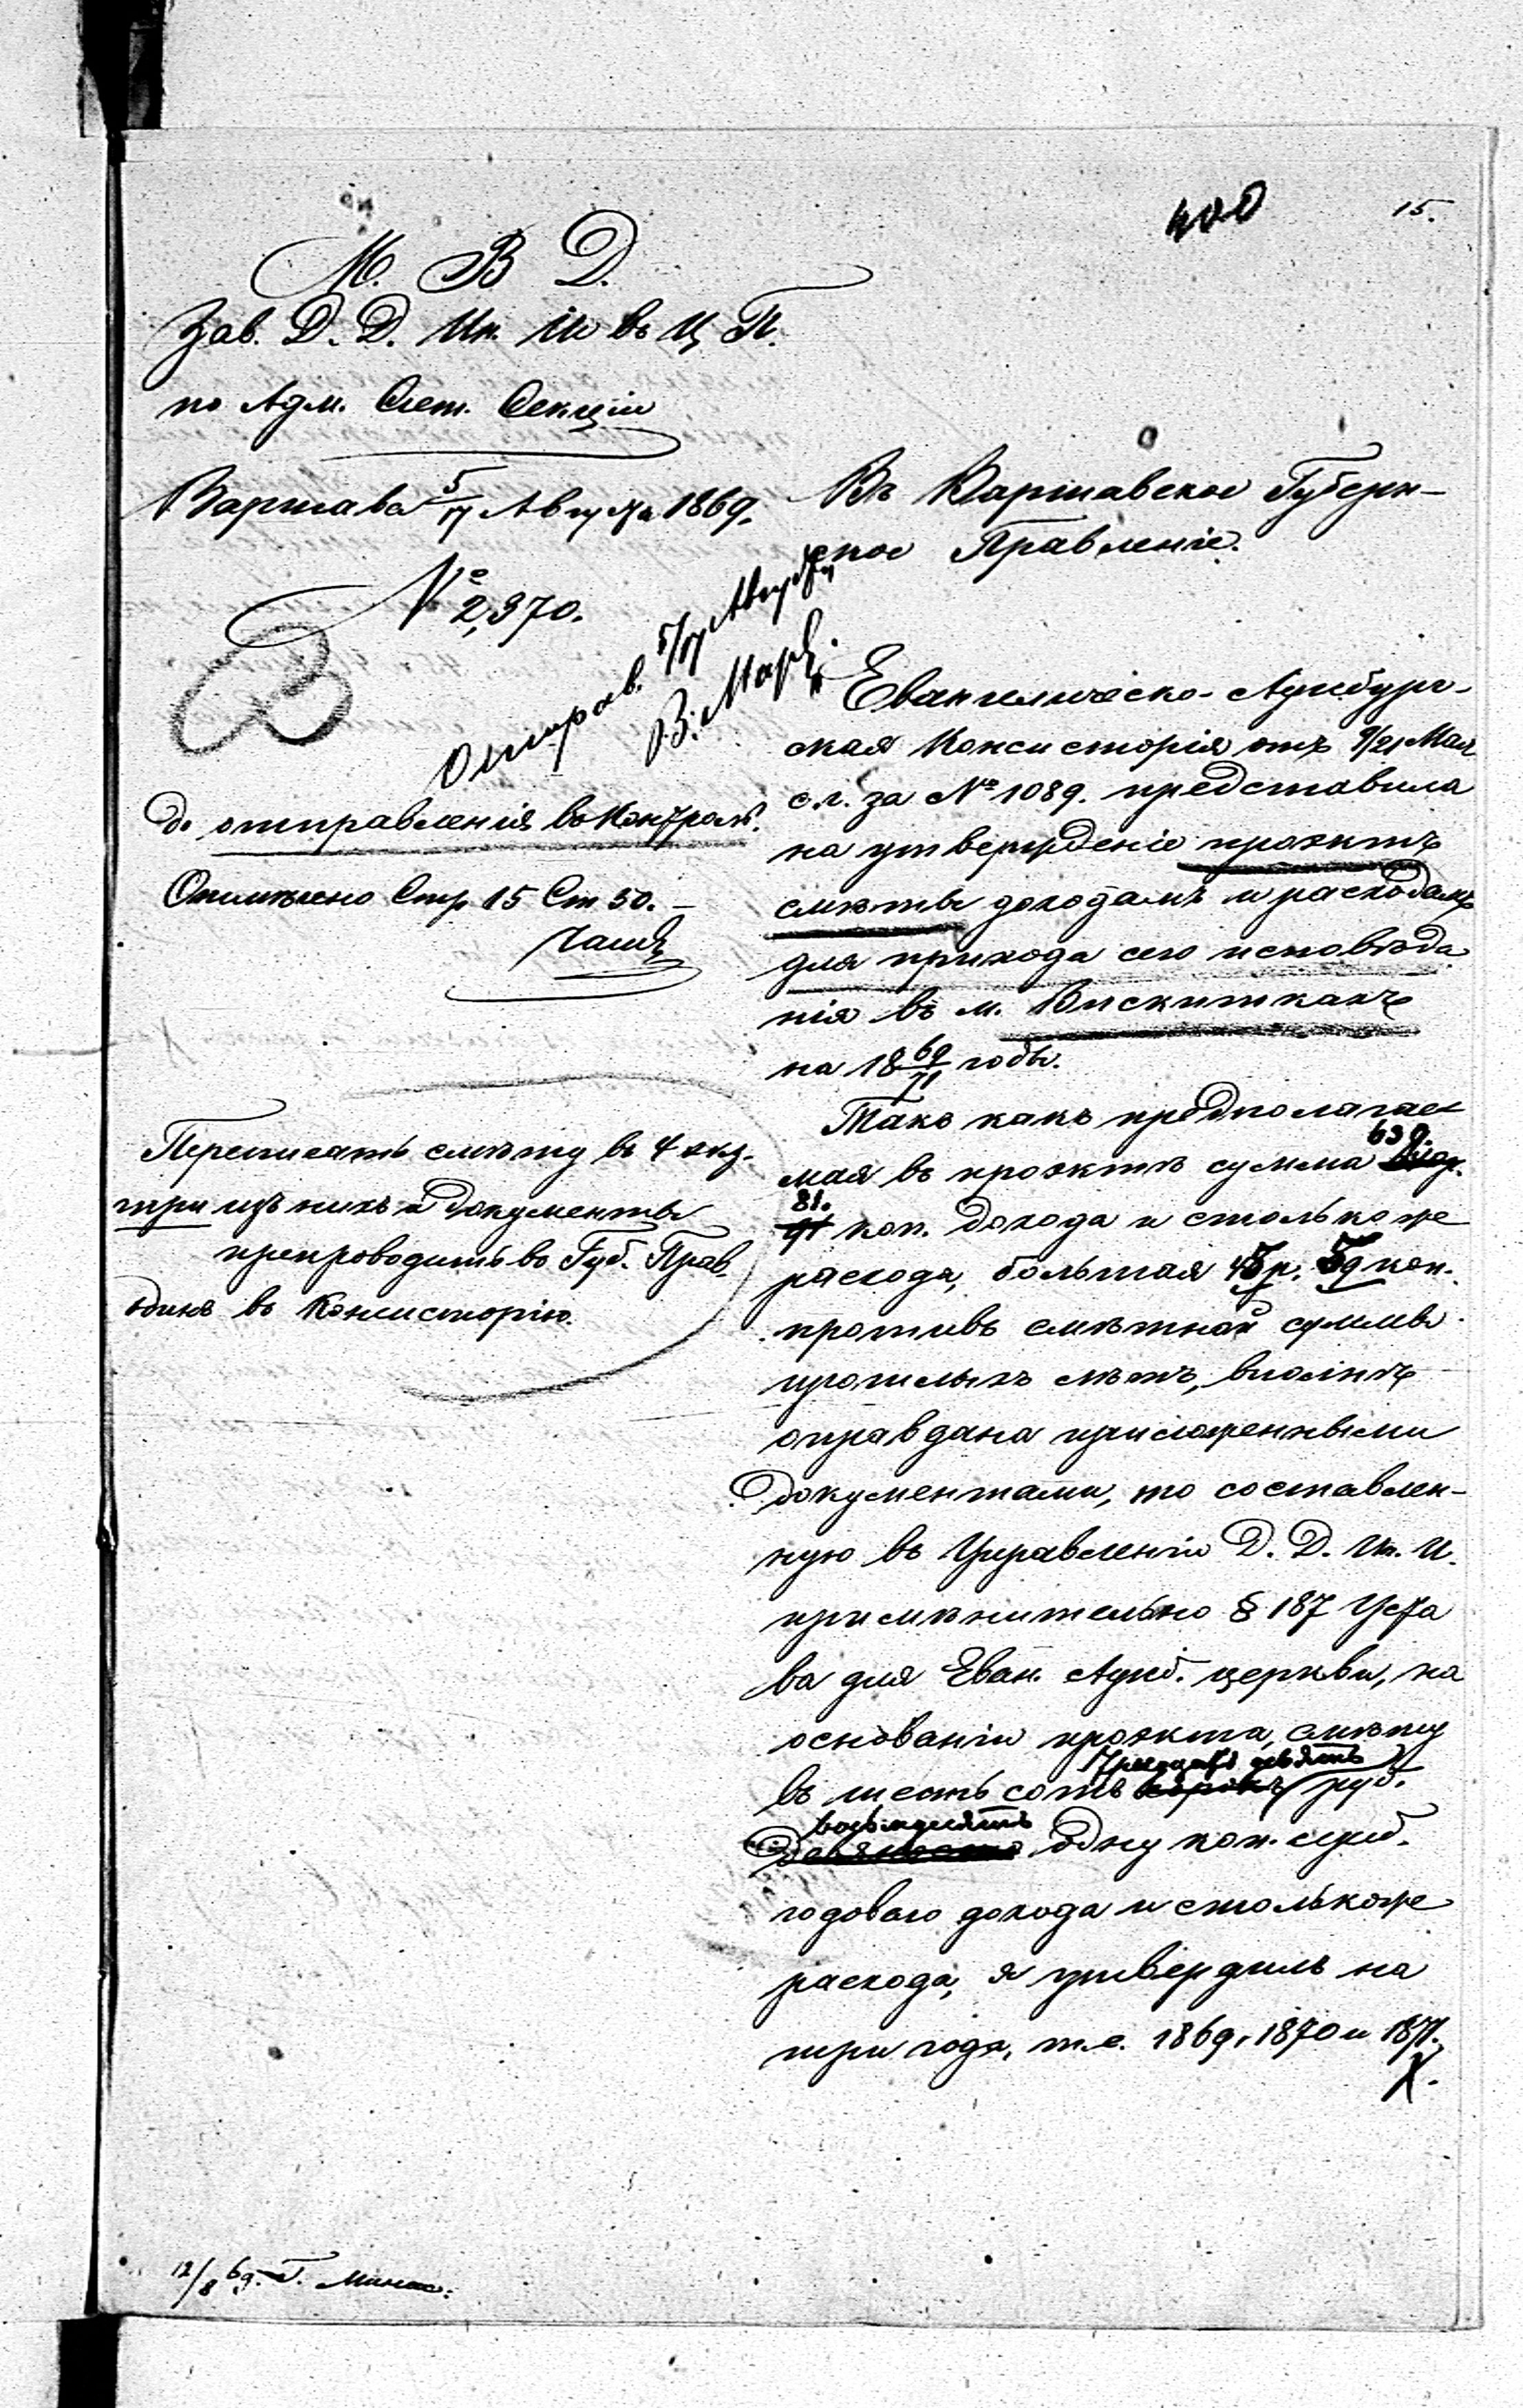 400
15.
М. В. Д.
Зав. Д. Д. Ин. Ис. въ Ц. П.
по Адм. Счет. Секціи
Варшава 5/17 Августа 1869.
№ 2,370.
Отправ. 5/17 Августа
до отправленія въ Контроль.
Отмѣчено Стр. 15 Ст 50. —
Переписать смѣту въ 4 экз.
три изъ нихъ и документы
препроводить въ Губ. Прав.
одинъ въ Консисторію.
Въ Варшавское Губерн-
ское Правленіе.
Евангелическо-Аугсбург-
ская Консисторія отъ 9/21 Мая
с. г. за № 1089. представила
на утвержденіе проэктъ
смѣты доходамъ и расходамъ
для прихода сего исповѣда-
нія въ м. Вискиткахъ
на 18 69/71 годы.
Такъ какъ предполагае-
мая въ проэктѣ сумма 639.
81. 91 коп. дохода и столько же
расхода, большая 45 р. 59 коп.
противъ смѣтной суммы
прошлыхъ лѣтъ, вполнѣ
оправдана приложенными
документами, то составлен-
ную въ Управленіи Д. Д. Ин. И.
примѣнительно § 187 Уста
ва для Еван. Аугсб. церкви, на
основаніи проэкта, смѣту
тридцать девять
въ шесть сотъ сорокъ руб.
восемьдесятъ
девяносто одну коп. сереб.
годоваго дохода и столько же
расхода, я утвердилъ на
три года, т. е. 1869, 1870 и 1871.
X.
12/8 69.